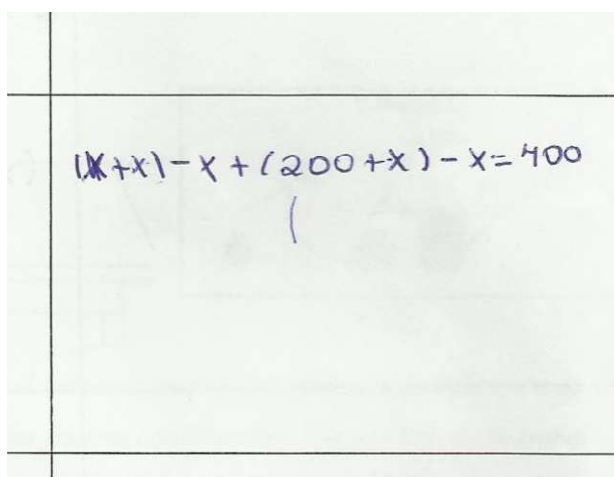 (x+x)-x+(200+x)-x=400
(